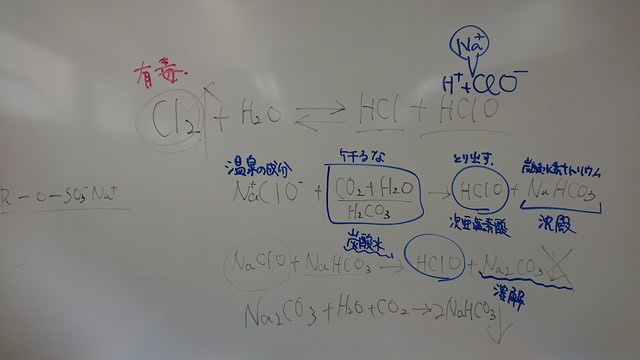 Na⁺
有毒.
H⁺+ClO⁻
Cl₂ + H₂O ⇌ HCl + HClO
温泉の成分
とり出す.
炭酸水素ナトリウム
Na⁺ClO⁻ + CO₂+H₂O → HClO + NaHCO₃
H₂CO₃
次亜塩素酸
沈殿
R-O-SO₃⁻Na⁺
炭酸水
NaClO + NaHCO₃ → HClO + Na₂CO₃
溶解
Na₂CO₃+H₂O+CO₂→2NaHCO₃↓